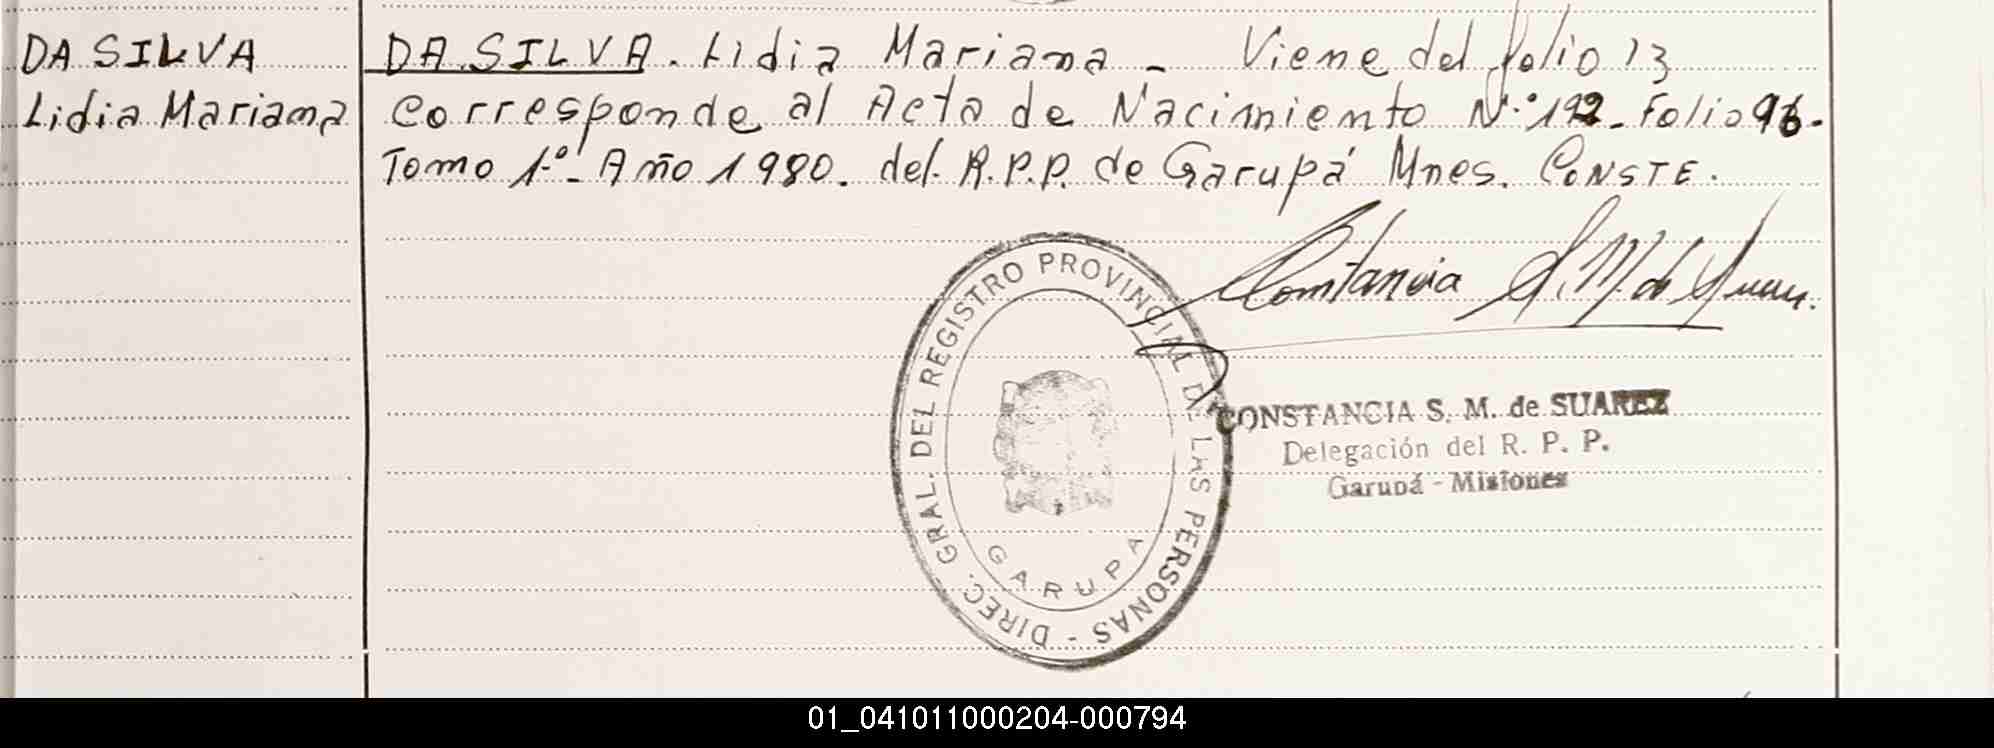 DA SILVA
Lidia Mariana
DA SILVA. Lidia Mariana - Viene del folio 13
Corresponde al Acta de Nacimiento N.º 192. Folio 96.
Tomo 1.º - Año 1980. del R.P.P. de Garupá Mnes. CONSTE.
Constancia S. M. de Suarez.
DIREC. GRAL. DEL REGISTRO PROVINCIAL DE LAS PERSONAS -
GARUPA
CONSTANCIA S. M. de SUAREZ
Delegación del R. P. P.
Garupá - Misiones
01_041011000204-000794